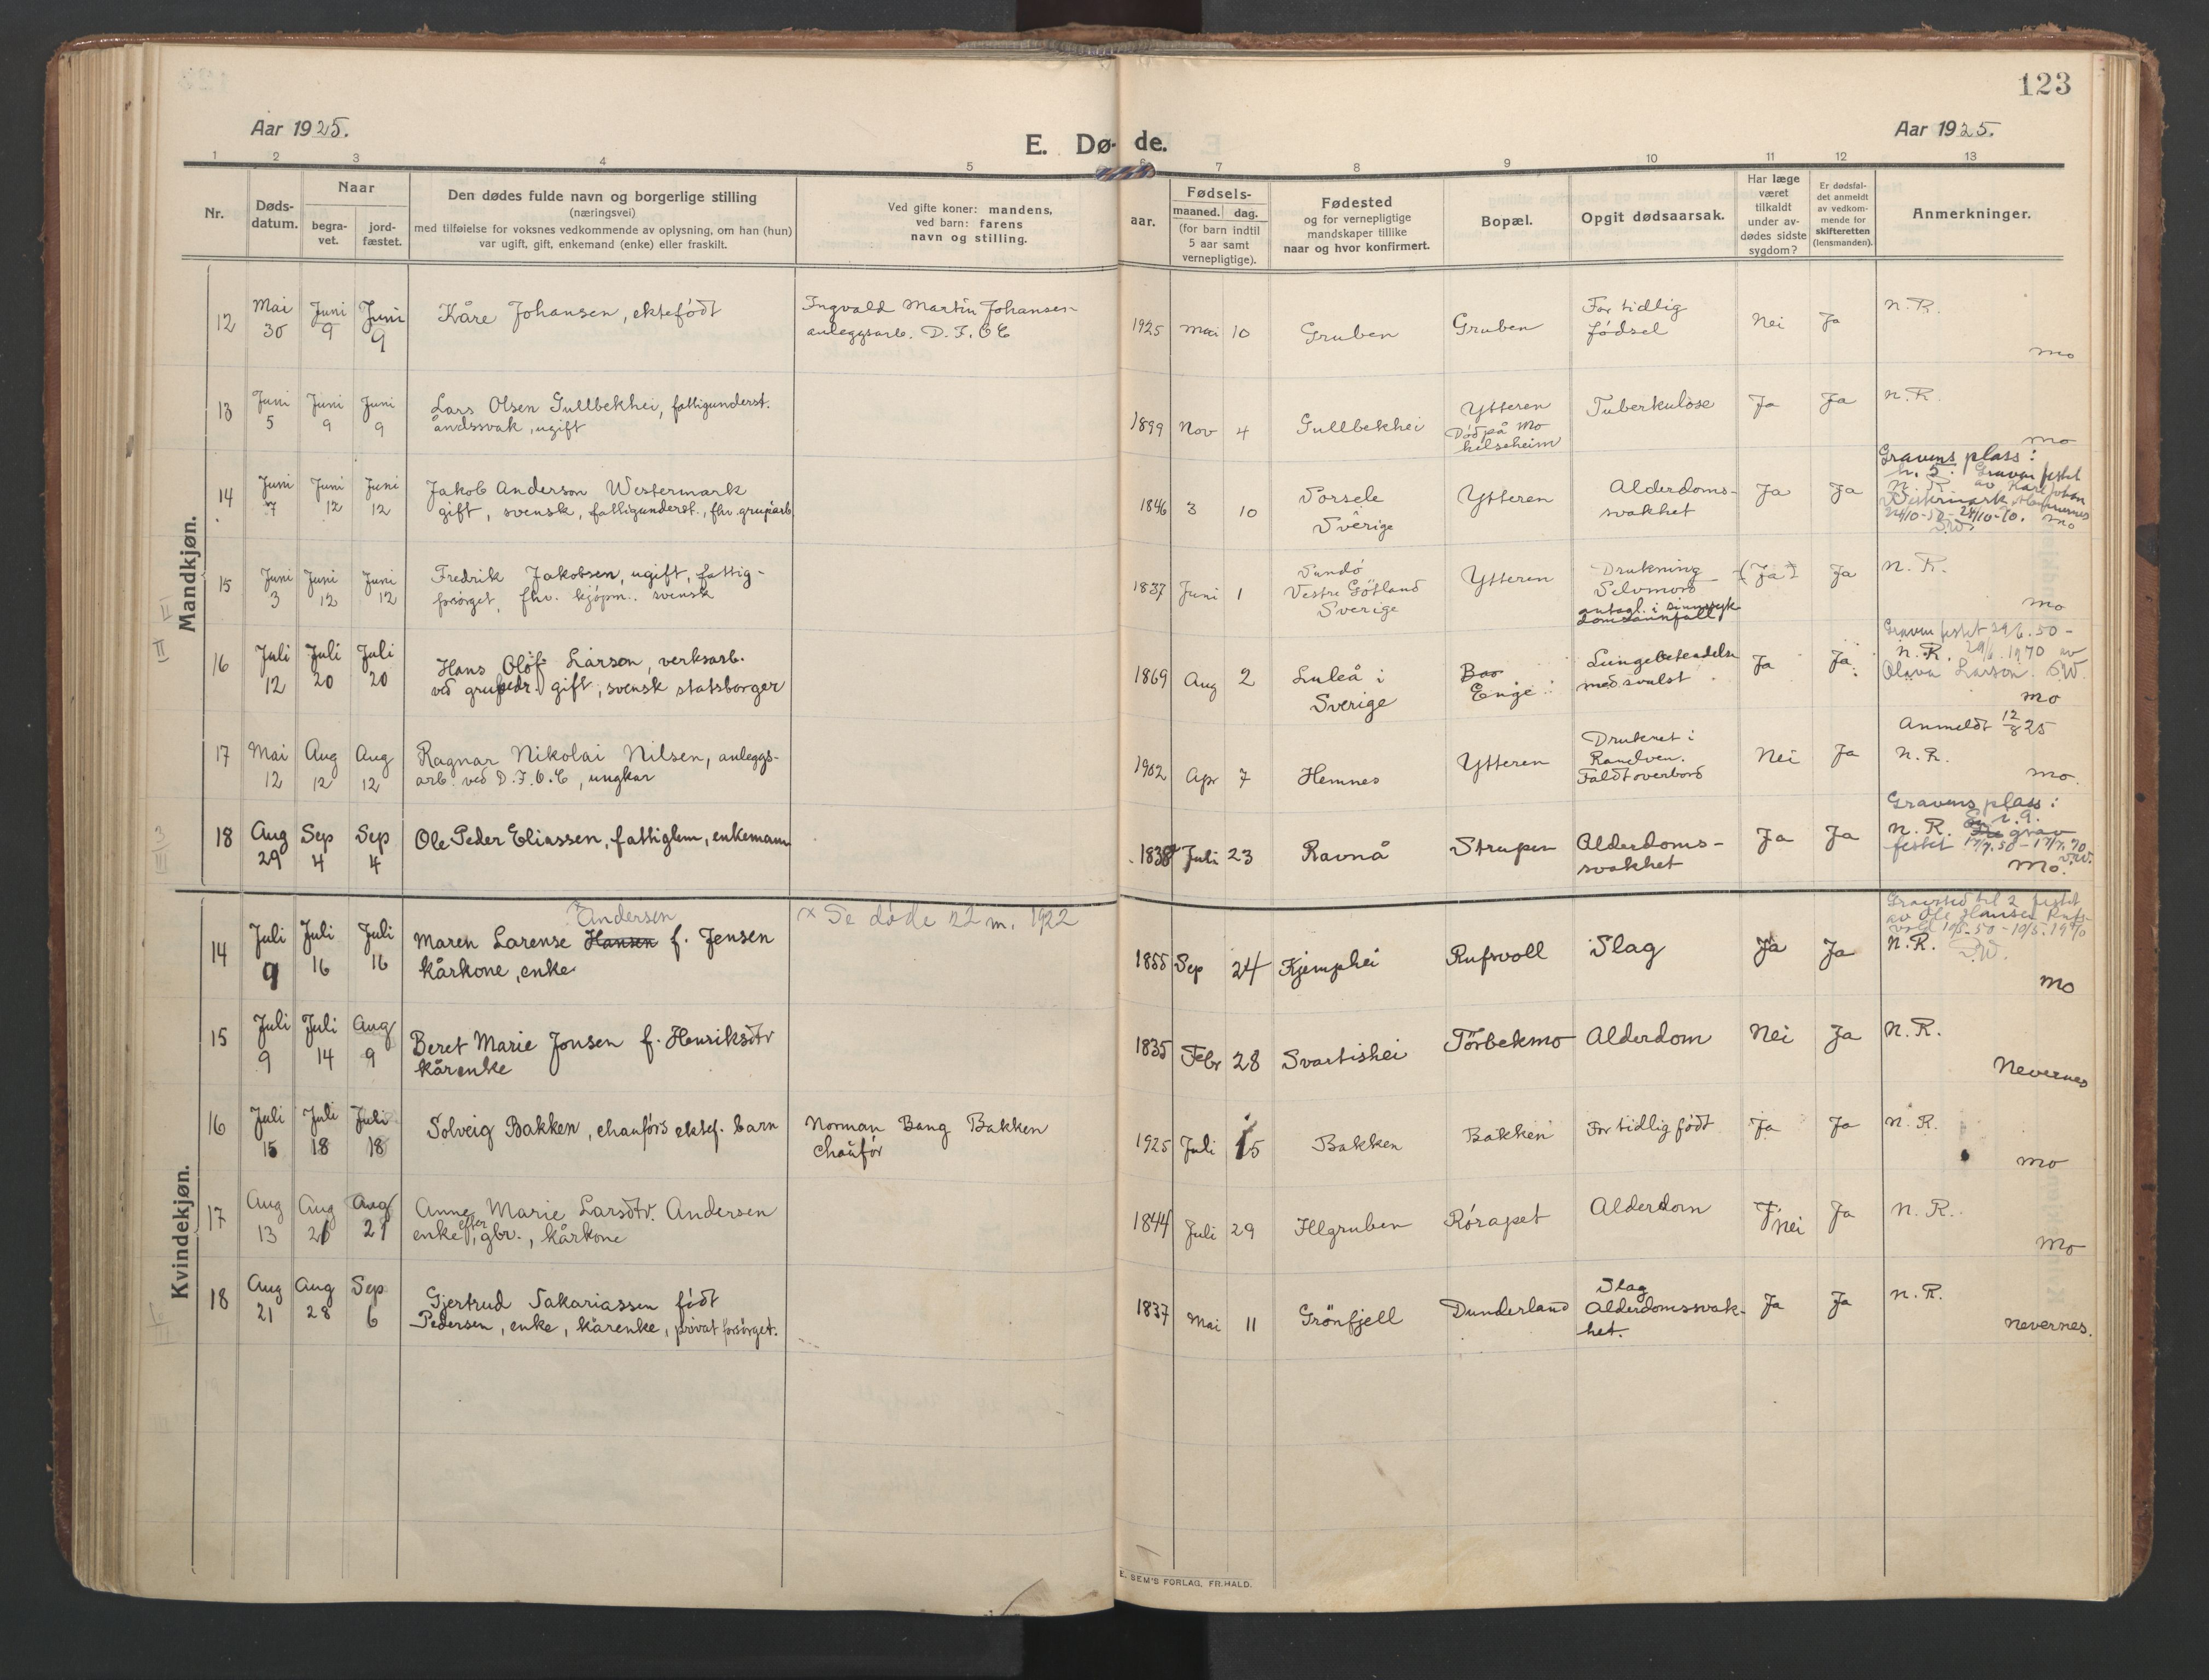 123
Aar 1925.
E. Dø- de.
Aar 1925.
1 2 3 4 5 6 7 8 9 10 11 12 13
Nr.
Døds-
datum.
Naar
begra-
vet.
jord-
fæstet.
Den dødes fulde navn og borgerlige stilling
(næringsvei)
med tilføielse for voksnes vedkommende av oplysning, om han (hun)
var ugift, gift, enkemand (enke) eller fraskilt.
Ved gifte koner: mandens,
ved barn: farens
navn og stilling.
aar.
Fødsels-
maaned. dag.
(for barn indtil
5 aar samt
vernepligtige).
Fødested
og for vernepligtige
mandskaper tillike
naar og hvor konfirmert.
Bopæl.
Opgit dødsaarsak.
Har læge
været
tilkaldt
under av-
dødes sidste
sygdom?
Er dødsfal-
det anmeldt
av vedkom-
mende for
skifteretten
(lensmanden).
Anmerkninger.
Mandkjøn.
12
Mai
30
Juni
9
Juni
9
Kåre Johansen, ektefødt
Ingvald Martin Johansen
anleggsarb. D.F.O.C
1925 Mai 10
Gruben
Gruben
For tidlig
fødsel
Nei
Ja
N.R.
Mo
13
Juni
5
Juni
9
Juni
9
Lars Olsen Gullbekhei, fattigunderst.
åndssvak, ugift
1899 Nov 4
Gullbekhei
Ytteren
Død på Mo
helseheim
Tuberkulose
Ja
Ja
N.R.
Mo
14
Juni
7
Juni
12
Juni
12
Jakob Anderson Westermark
gift, svensk, fattigunderst., fhv. grubarb
1846 3 10
Sorsele
Sverige
Ytteren
Alderdoms-
svakhet
Ja
Ja
Gravens plass:
Graven festet
N.R. av Karl Johan
Westermark,
24/10-50 - 24/10-70.
Mo
15
Juni
3
Juni
12
Juni
12
Fredrik Jakobsen, ugift, fattig-
forsørget, fhv. kjøpm., svensk
1837 Juni 1
Sundö
Vestre Götland
Sverige
Ytteren
Drukning
Selvmord
antagl. i sinnssyk
domsannfall
(Ja)
Ja
N.R.
Mo
16
Juli
12
Juli
20
Juli
20
Hans Olof Larson, verksarb.
ved grubedr. gift, svensk statsborger
1869 Aug 2
Luleå i
Sverige
Enge
Lungebetendelse
med svulst
Ja
Ja
Graven festet 29/6.50-
N.R. 29/6.1970 av
Olava Larson. S.W.
Mo
17
Mai
12
Aug
12
Aug
12
Ragnar Nikolai Nilsen, anleggs-
arb. ved D.F.O.C, ungkar
1902 Apr 7
Hemnes
Ytteren
Druknet i
Ranelven.
Faldt overbord
Nei
Ja
Anmeldt 12/8 25
N.R.
Mo.
18
Aug
29
Sep
4
Sep
4
Ole Peder Eliassen, fattiglem, enkemann
1838 Juli 23
Ravnå
Strupen
Alderdoms-
svakhet
Ja
Ja
Gravens plass:
N.R. grav
festet 17/7.50 - 17/7.70
Mo.
Kvindekjøn.
14
Juli
9
Juli
16
Juli
16
× Andersen
Maren Larense Hansen f. Jensen
kårkone, enke
× Se døde n2 m. 1922
1855 Sep 24
Kjemphei
Rufsvoll
Slag
Ja
Ja
Gravsted til 2 festet
av Ole Hansen Rufs-
vold 19/5-50 - 19/5.1970
N.R. S.W.
Mo
15
Juli
9
Juli
14
Aug
9
Beret Marie Jonsen f. Henriksdtr
kårenke
1835 Febr 28
Svartishei
Törbekmo
Alderdom
Nei
Ja
N.R.
Nevernes
16
Juli
15
Juli
18
Juli
18
Solveig Bakken, chauførs ektef. barn
Norman Bang Bakken
chauför
1925 Juli 15
Bakken
Bakken
For tidlig født
Ja
Ja
N.R.
Mo
17
Aug
13
Aug
21
Aug
21
Anne Marie Larsdtr. Andersen
enke efter gbr., kårkone
1844 Juli 29
Ilgruben
Rørapet
Alderdom
Nei
Ja
N.R.
Mo
18
Aug
21
Aug
28
Sep
6
Gjertrud Sakariassen født
Pedersen, enke, kårenke, privat forsørget.
1837 Mai 11
Grönfjell
Dunderland
Slag
Alderdomssvak-
het.
Ja
Ja
N.R.
Nevernes.
E. SEM'S FORLAG, FR.HALD.